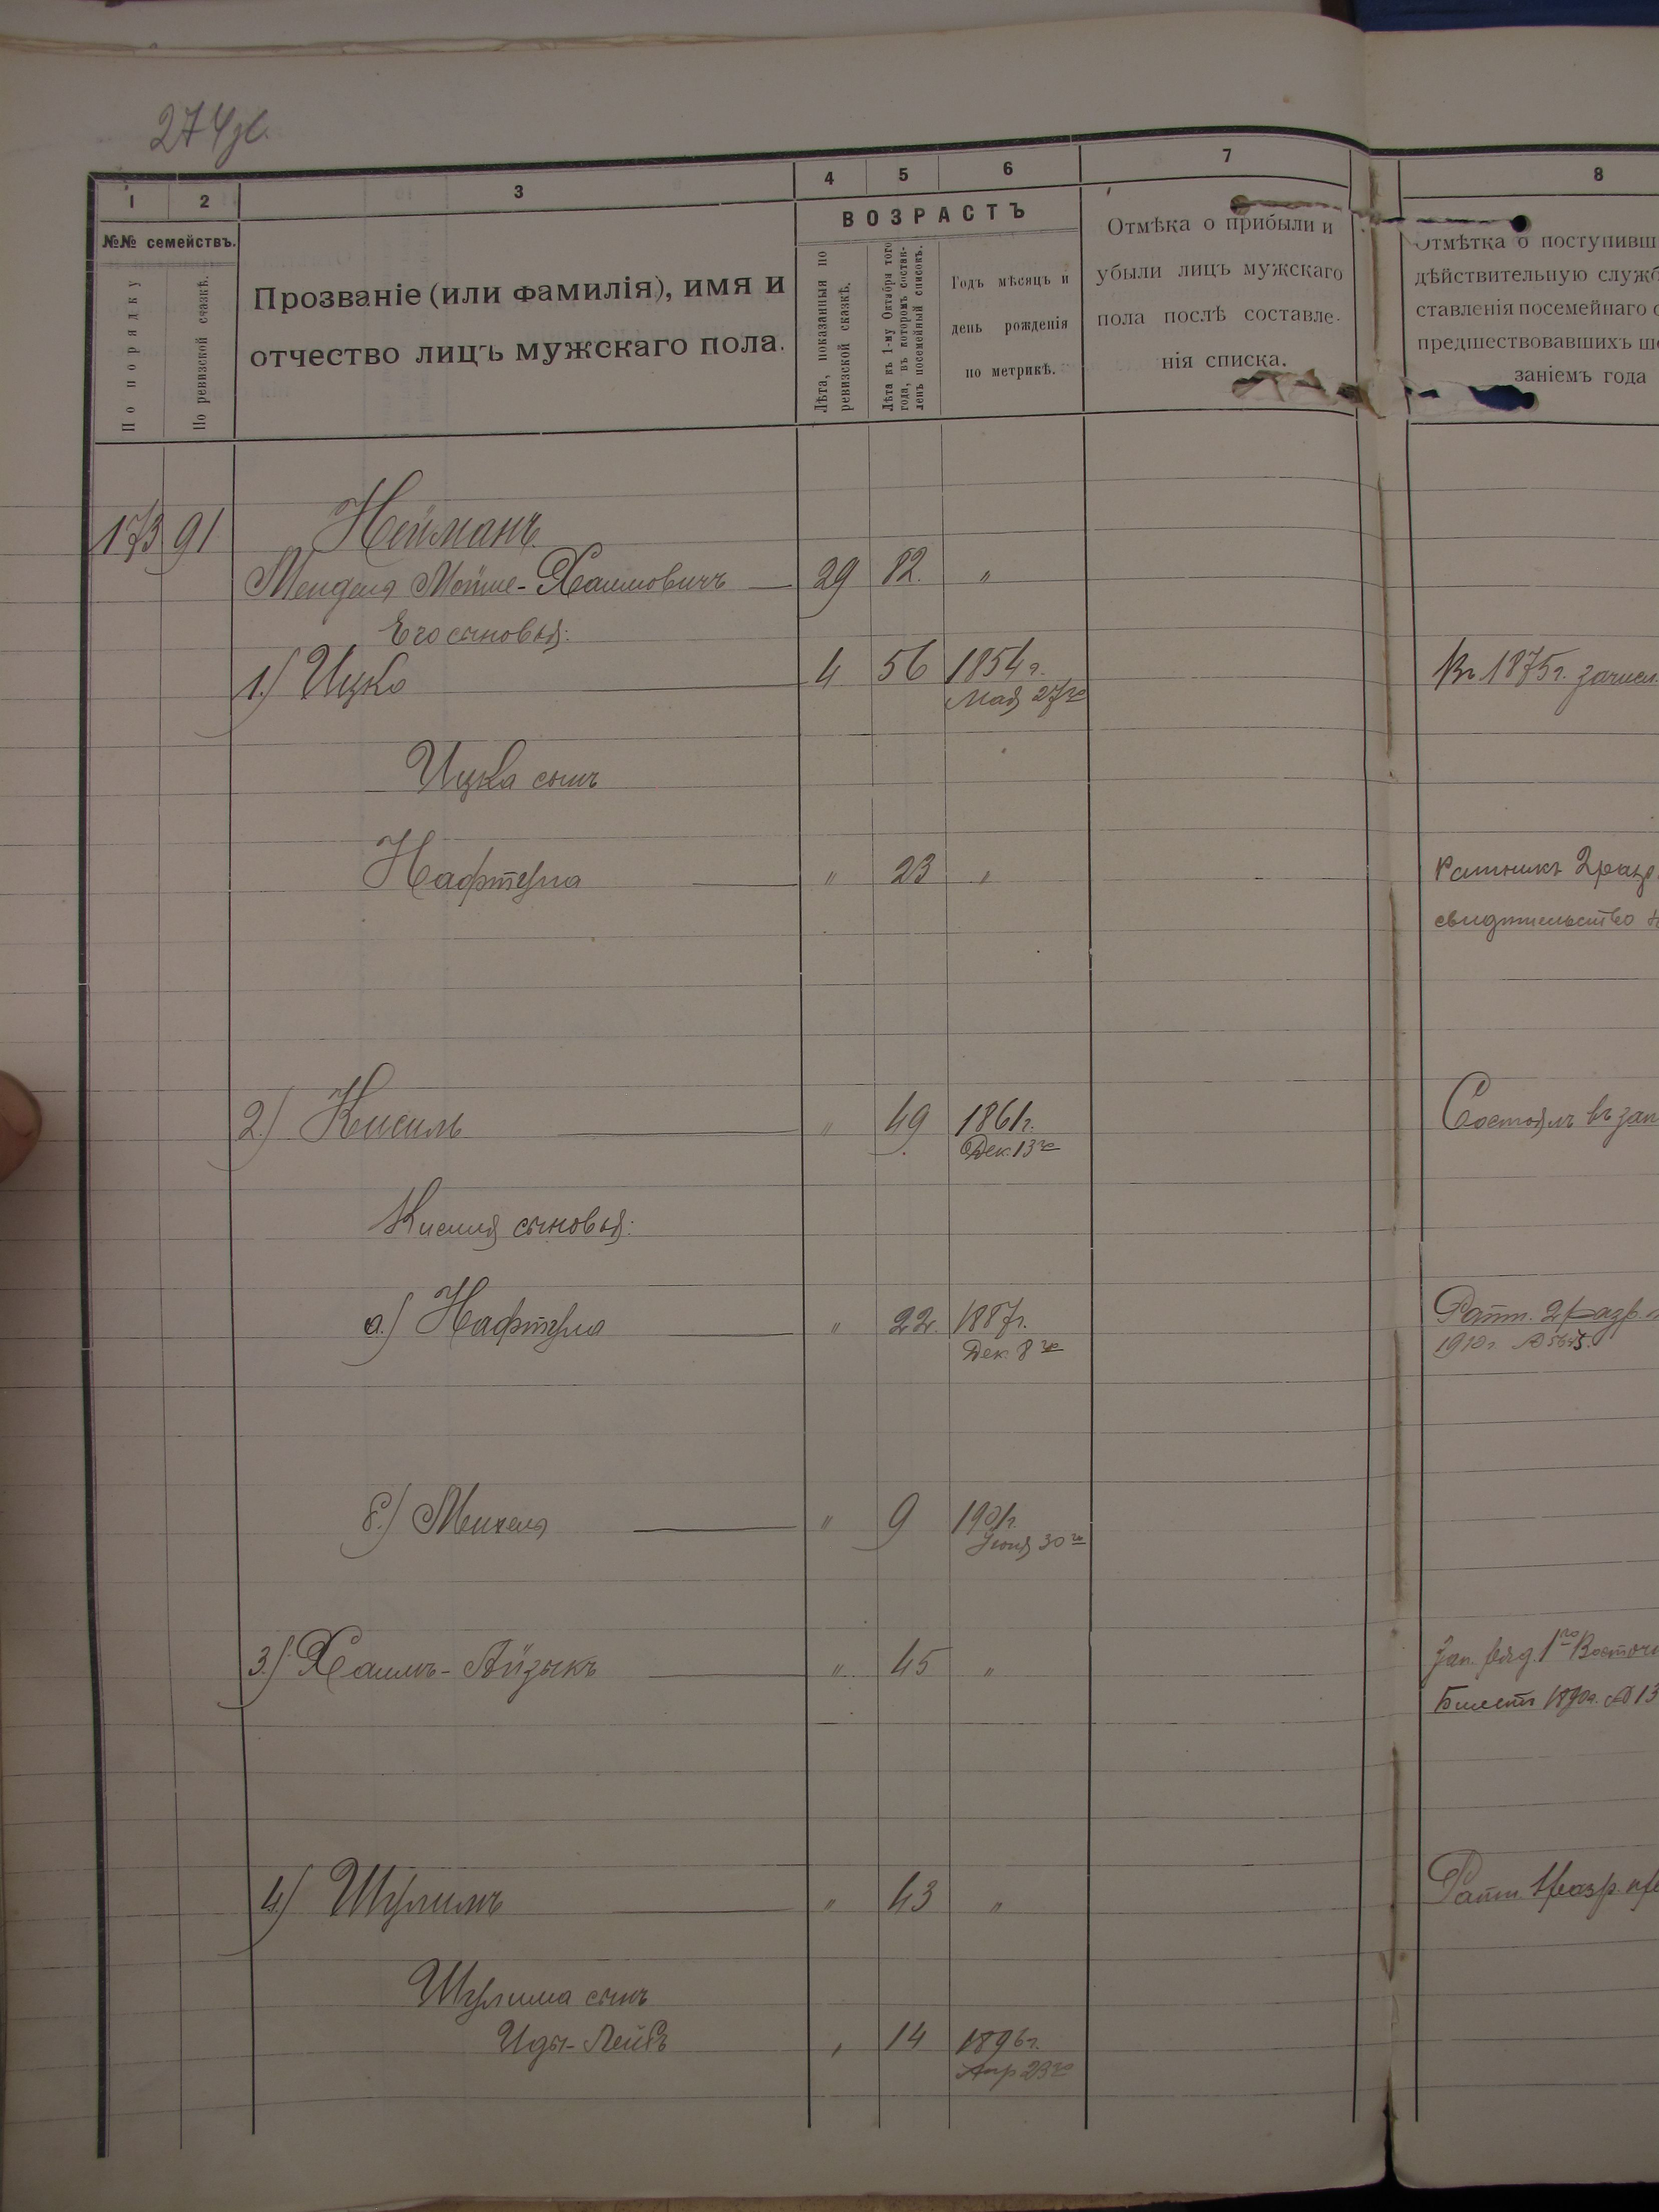 274
1 2 3 4 5 6 7 8
№№ семействъ.
По порядку
По ревизской сказкѣ.
Прозваніе (или фамилія), имя и
отчество лицъ мужскаго пола.
ВОЗРАСТЪ
Лѣта, показанныя по
ревизской сказкѣ.
Лѣта къ 1-му Октября того
года, въ которомъ состав-
ленъ посемейный списокъ.
Годъ мѣсяцъ и
день рожденія
по метрикѣ.
Отмѣка о прибыли и
убыли лицъ мужскаго
пола послѣ составле-
нія списка.
Отмѣтка о поступивш
дѣйствительную служб
ставленія посемейнаго с
предшествовавшихъ
заніемъ года
173 91 Нейманъ.
Менделя Мойше-Хаимовичъ 29 82. "
Его сыновья:
1.) Ицко 4 56 1854 г.
Мая 27го
Въ 1875 г. зачисл.
Ицка сынъ
Нафтула " 23 "
Ратникъ 2 разр.
свидѣтельство
2.) Кисиль " 49 1861 г.
Дек. 13го
Состоялъ въ зап
Кисиля сыновья:
а.) Нафтула " 22. 1887 г.
Дек. 8го
Ратн. 2 разр.
1910 г. №
б.) Михель " 9 1901 г.
Іюня 30го
3.) Хаимъ-Айзыкъ " 45 "
Зап. ряд. 1го Восточн
Билетъ 1890 г. № 13
4.) Шулимъ " 43 "
Ратн. 1 разр.
Шулима сынъ
Иды-Лейбъ " 14 1896 г.
Апр 23го